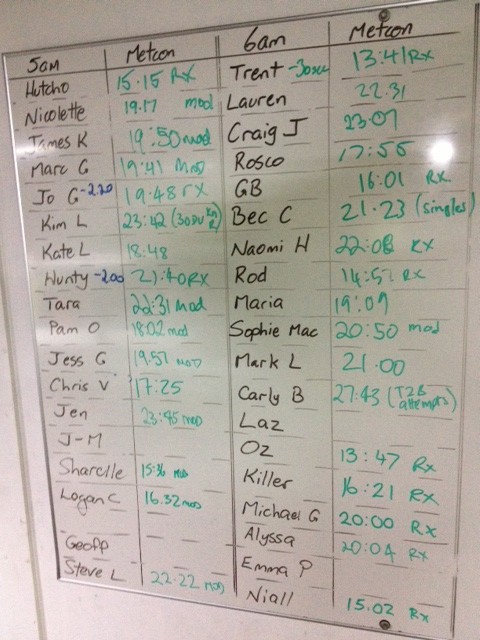 5am Metcon 6am Metcon
Hutcho 15:15 Rx Trent -30sec 13:41 Rx
Nicolette 19.17 mod Lauren 22.31
James K 19:50 mod Craig J 23:07
Marc G 19:41 Mod Rosco 17:55
Jo G -220 19:48 rx GB 16:01 Rx
Kim L 23:42 Bec C 21.23 (singles)
Kate L 18:48 Naomi H 22:08 Rx
Hunty -200 21:40 RX Rod 14:57 Rx
Tara 22:31 mod Maria 19:09
Pam O 18:02 mod Sophie Mac 20:50 mod
Jess G 19.57 mod Mark L 21.00
Chris V 17:25 Carly B 27:43 (T2B attempts)
Jen 23:45 mod Laz
J-M Oz 13:47 Rx
Sharelle 15:36 mod Killer 16:21 Rx
Logan C 16.32 mod Michael G 20:00 Rx
Alyssa 20:04 Rx
Geoff P Emma P
Steve L 22:22 mod Niall 15.02 Rx